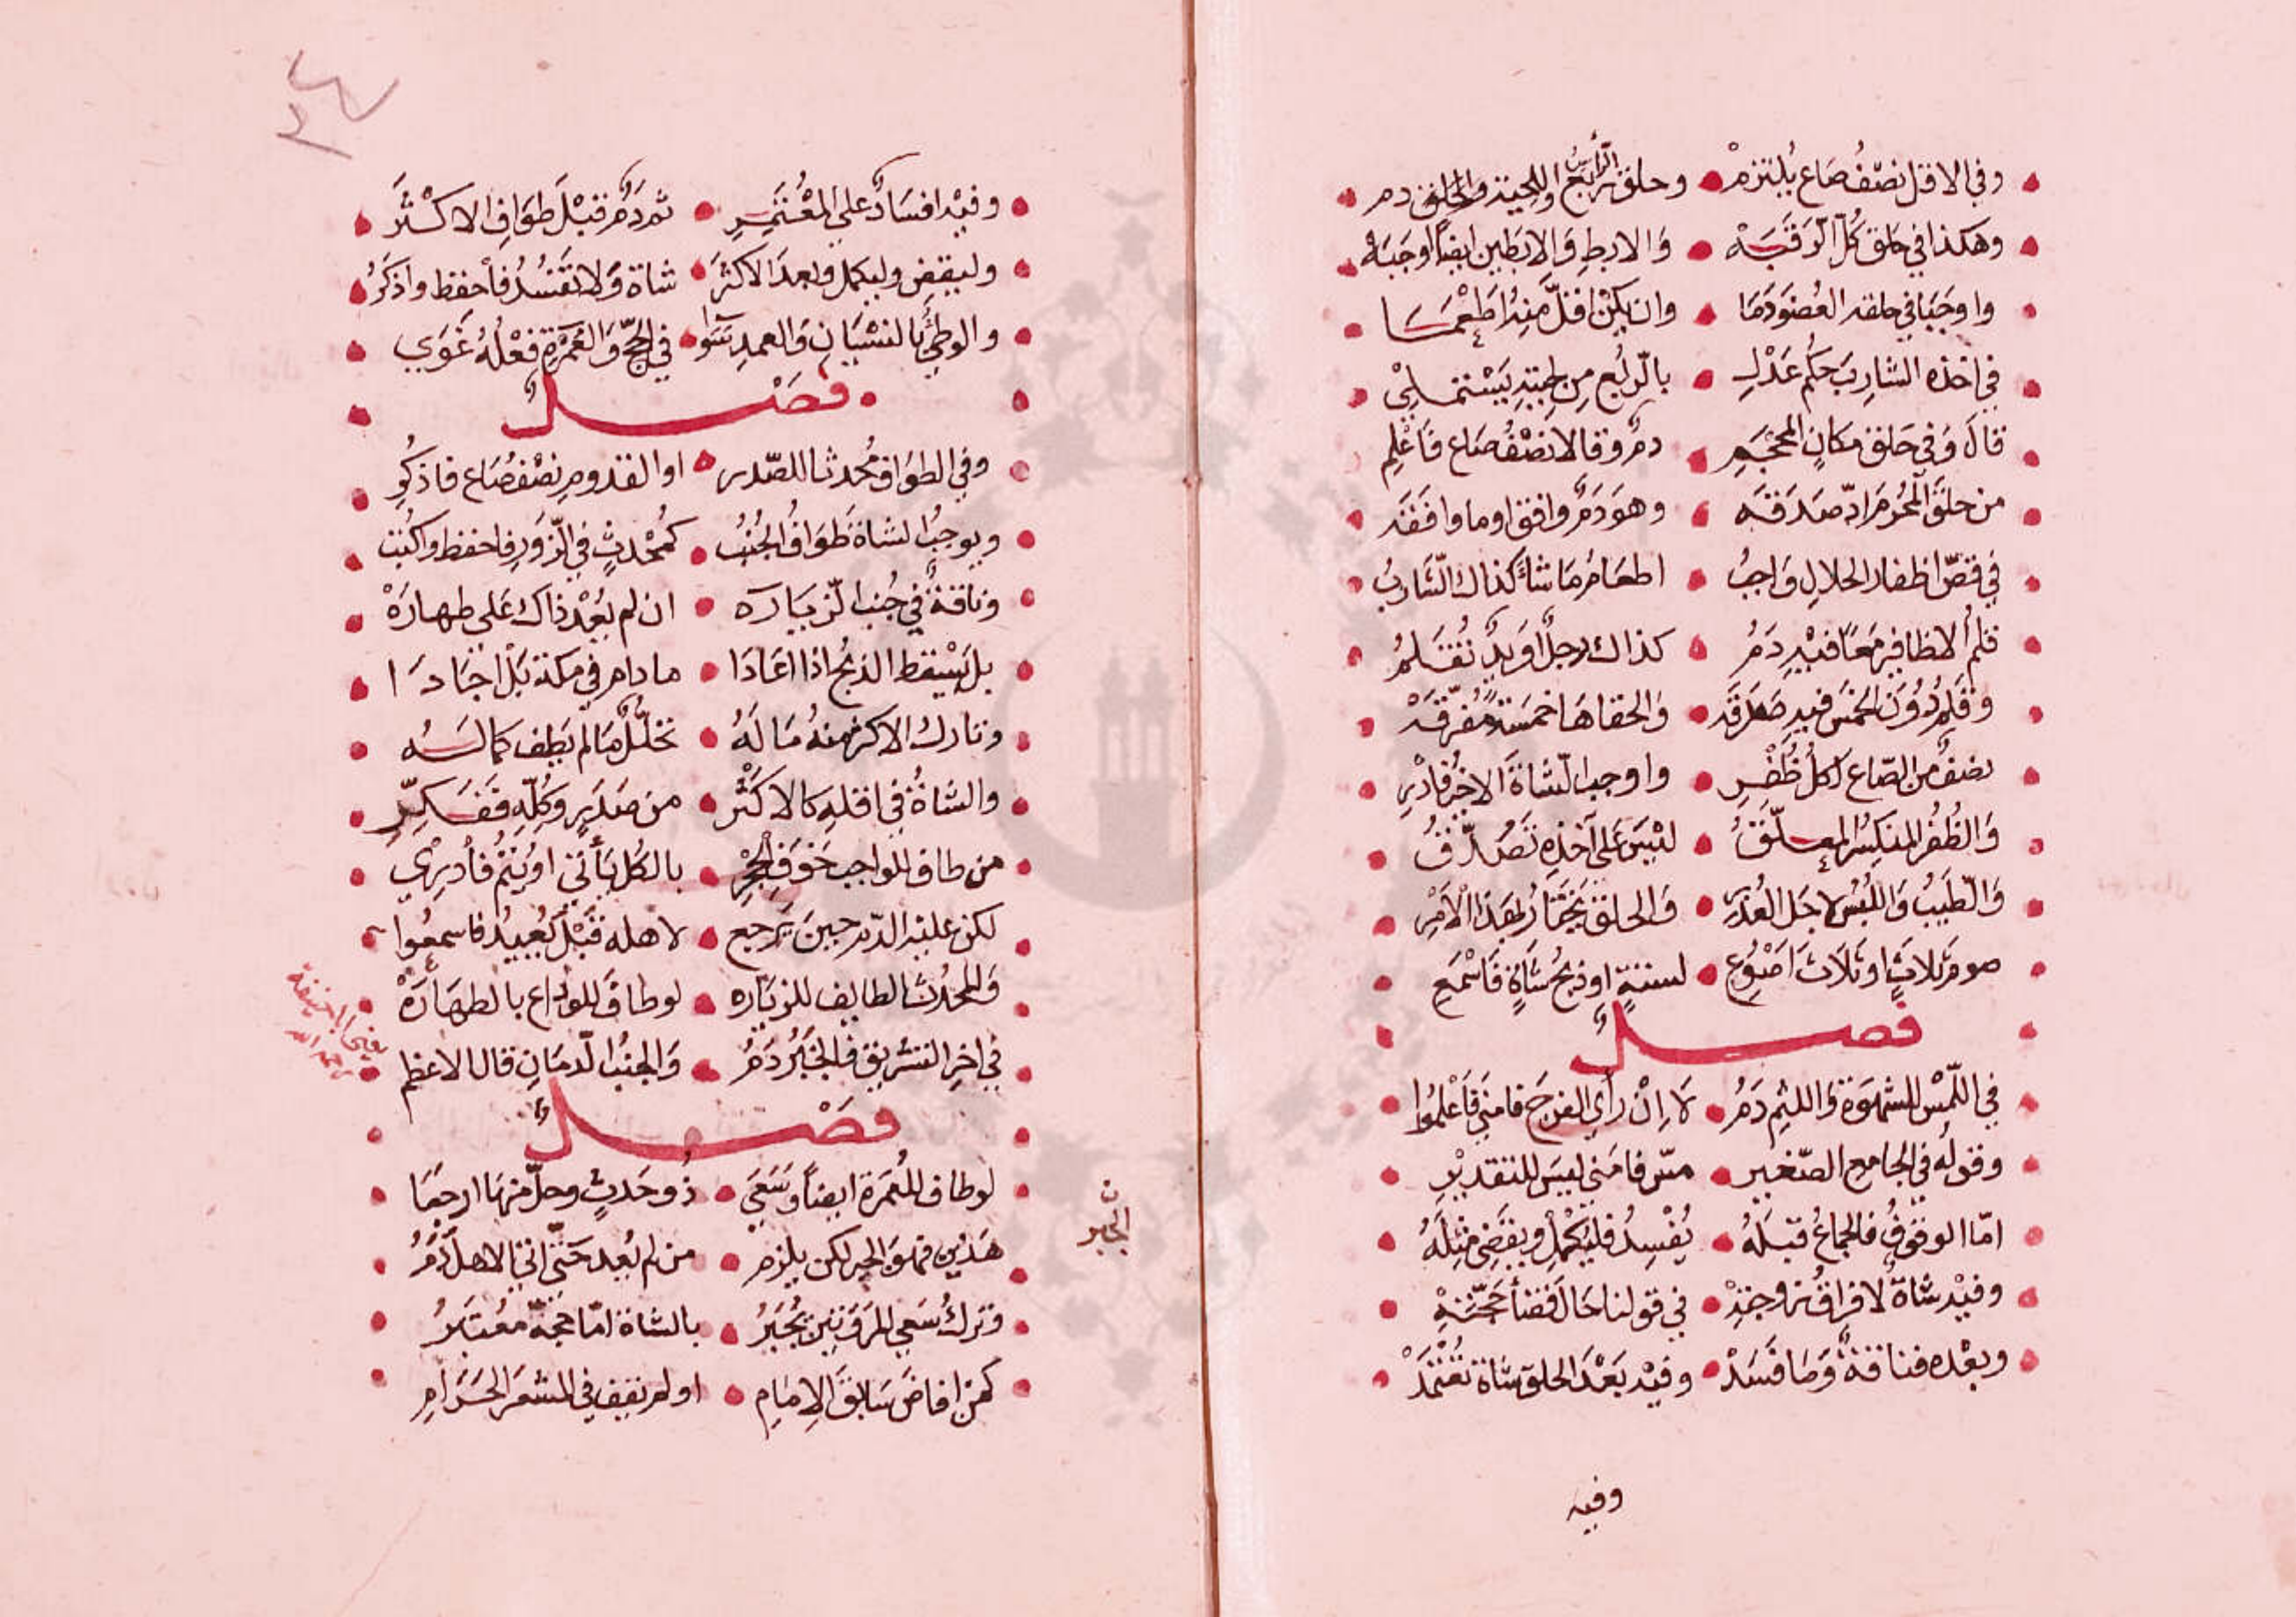 وفي الاقل نصف صاع يلتزم وحلق ربع الرأس او اللحية والحلق دم
وهكذا في حلق كل الرقبه والابط والابطين ايضا اوجبه
واوجبا في حلقه العضو دما وان يكن اقل منه اطعما
في اخذه الشارب حكم عدل بالربع من لحيته يستملي
قال وفي حلق مكان المحجم دم وقالا نصف صاع فاعلم
من حلق المحرم اد صدقه وهو دم وافق او ما وافقه
في قص اظفار الحلال واجب اطعام ما شاء كذاك الشارب
قلم الاظافير معا فيه دم كذاك رجل او يد تقلم
وقلم دون الخمس فيه صدقه والحقاها خمسة مفرقه
نصف من الصاع لكل ظفر واوجب الشاة الاخير فادر
والظفر المنكسر المعلق ليس على آخذه تصدق
والطيب واللبس لاجل العذر والحلق يختار بهذا الامر
صوم ثلاث او ثلاث اصوع لستة او ذبح شاة فاسمع
فصل
في اللمس للشهوة واللثم دم لا ان رأي الفرج فامني فاعلموا
وقوله في الجامع الصغير مس فامني ليس للتقدير
اما الوقوف فالجماع قبله يفسد فليكمل ويقضي مثله
وفيه شاة لا فراق زوجته في قولنا حال قضا حجته
وبعده فناقة وما فسد وفيه بعد الحلق شاة تعتمد
وفيه
وفيه افساد على المعتمر ثم دم قبل طواف الاكثر
وليقض وليكمل وبعد الاكثر شاة ولا تفسد فاحفظ واذكر
والوطئ بالنسيان والعمد سوا في الحج والعمرة فعله غوي
فصل
وفي الطواف محدثا للصدر او القدوم نصف صاع فاذكر
ويوجب الشاة طواف الجنب كمحدث في الزور فاحفظ واكتب
وناقة في جنب الزياره ان لم يعد ذاك على طهاره
بل يسقط الذبح اذا اعادا ما دام في مكة بل اجادا
وتارك الاكثر منه ما له تحلل ما لم يطف كماله
والشاة في اقله كالاكثر من صدر وكله ففكر
من طاف للواجب جوف الحجر بالكل يأتي او يتم فادري
لكن عليه الدم حين يرجع لاهله قبل يعيد فاسمعوا
والمحدث الطايف للزياره لو طاف للوداع بالطهاره
في اخر التشريق فالجبر دم والجنب الدمان قال الاعظم
رحمه الله
فصل
لو طاف للعمرة ايضا وسعي ذو حدث وحل منها ارجعا
هذين فهو الجبر لكن يلزم من لم يعد حتى اتي الاهل دم
وترك سعي المروتين يجبر بالشاة اما حجه معتبر
كمن افاض سابق الامام او لم يقف في المشعر الحرام